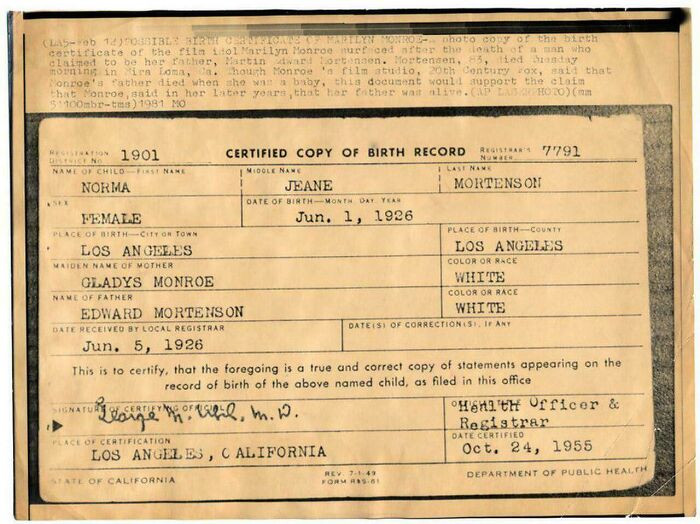 (LA5-Feb 12)POSSIBLE BIRTH CERTIFICATE OF MARILYN MONROE-A photo copy of the birth
certificate of the film idol Marilyn Monroe surfaced after the death of a man who
claimed to be her father, Martin Edward Mortensen. Mortensen, 83, died Tuesday
morning in Mira Loma, Ca. Though Monroe 's film studio, 20th Century Fox, said that
Monroe's father died when she was a baby, this document would support the claim
that Monroe,said in her later years,that her father was alive.(AP LASERPHOTO)(mm
51100mbr-tms)1981 MO
REGISTRATION DISTRICT No 1901 CERTIFIED COPY OF BIRTH RECORD REGISTRAR'S NUMBER 7791
NAME OF CHILD—FIRST NAME MIDDLE NAME LAST NAME
NORMA JEANE MORTENSON
SEX DATE OF BIRTH—MONTH DAY YEAR
FEMALE Jun. 1, 1926
PLACE OF BIRTH—CITY OR TOWN PLACE OF BIRTH—COUNTY
LOS ANGELES LOS ANGELES
MAIDEN NAME OF MOTHER COLOR OR RACE
GLADYS MONROE WHITE
NAME OF FATHER COLOR OR RACE
EDWARD MORTENSON WHITE
DATE RECEIVED BY LOCAL REGISTRAR DATE(S) OF CORRECTION(S), IF ANY
Jun. 5, 1926
This is to certify, that the foregoing is a true and correct copy of statements appearing on the
record of birth of the above named child, as filed in this office
SIGNATURE OF CERTIFYING OFFICIAL Health Officer &
George M. Uhl, M.D. Registrar
PLACE OF CERTIFICATION DATE CERTIFIED
LOS ANGELES, CALIFORNIA Oct. 24, 1955
STATE OF CALIFORNIA REV. 7-1-49 DEPARTMENT OF PUBLIC HEALTH
FORM